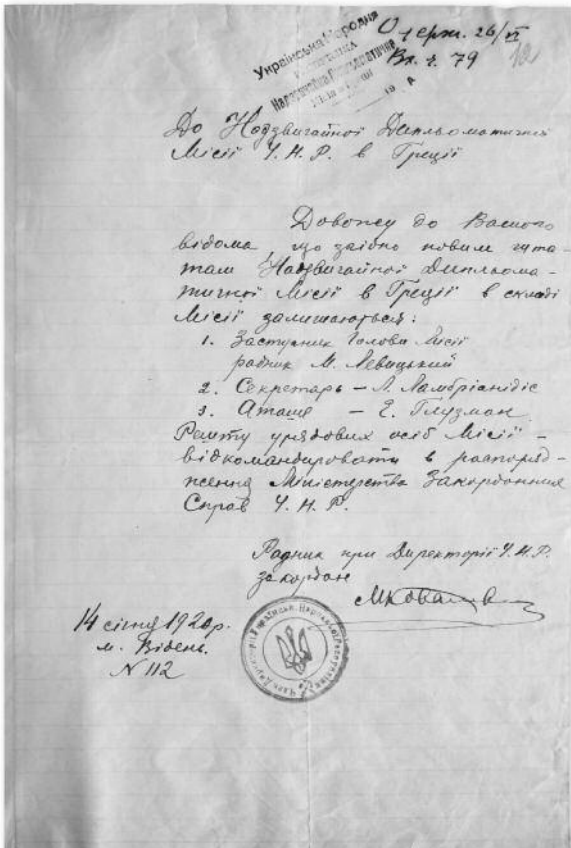 Українська Народня
Надзвичайна Дипльоматична
Одерж. 26/VI
Вх. ч. 79
До Надзвичайної Дипльоматичної
Місії У. Н. Р. в Греції
Довожу до Вашого
відома, що згідно новим шта-
там Надзвичайної Дипльома-
тичної Місії в Греції в складі
Місії залишаються:
1. Заступник Голови Місії
радник М. Левицький
2. Секретарь – Л. Ламбріанідіс
3. Аташе – Є. Глузман.
Решту урядових осіб Місії –
відкомандировати в распоряд-
ження Міністерства Закордонних
Справ У. Н. Р.
Радник при Директорії У.Н.Р.
закордон
14 січня 1920р.
м. Відень.
N 112